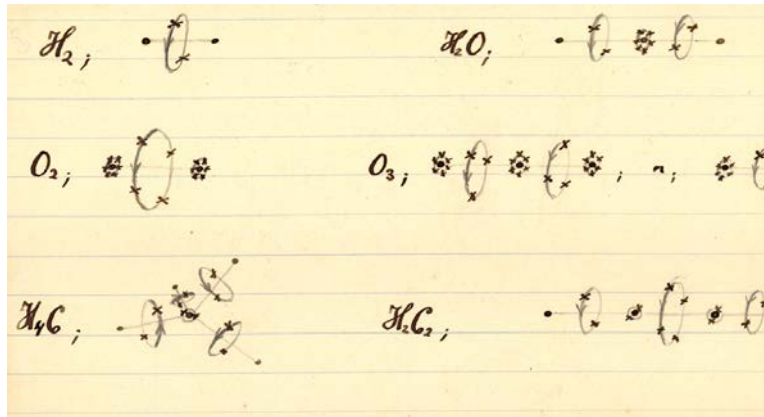 H₂; H₂O;
O₂; O₃; , n;
H₄C; H₂C₂;